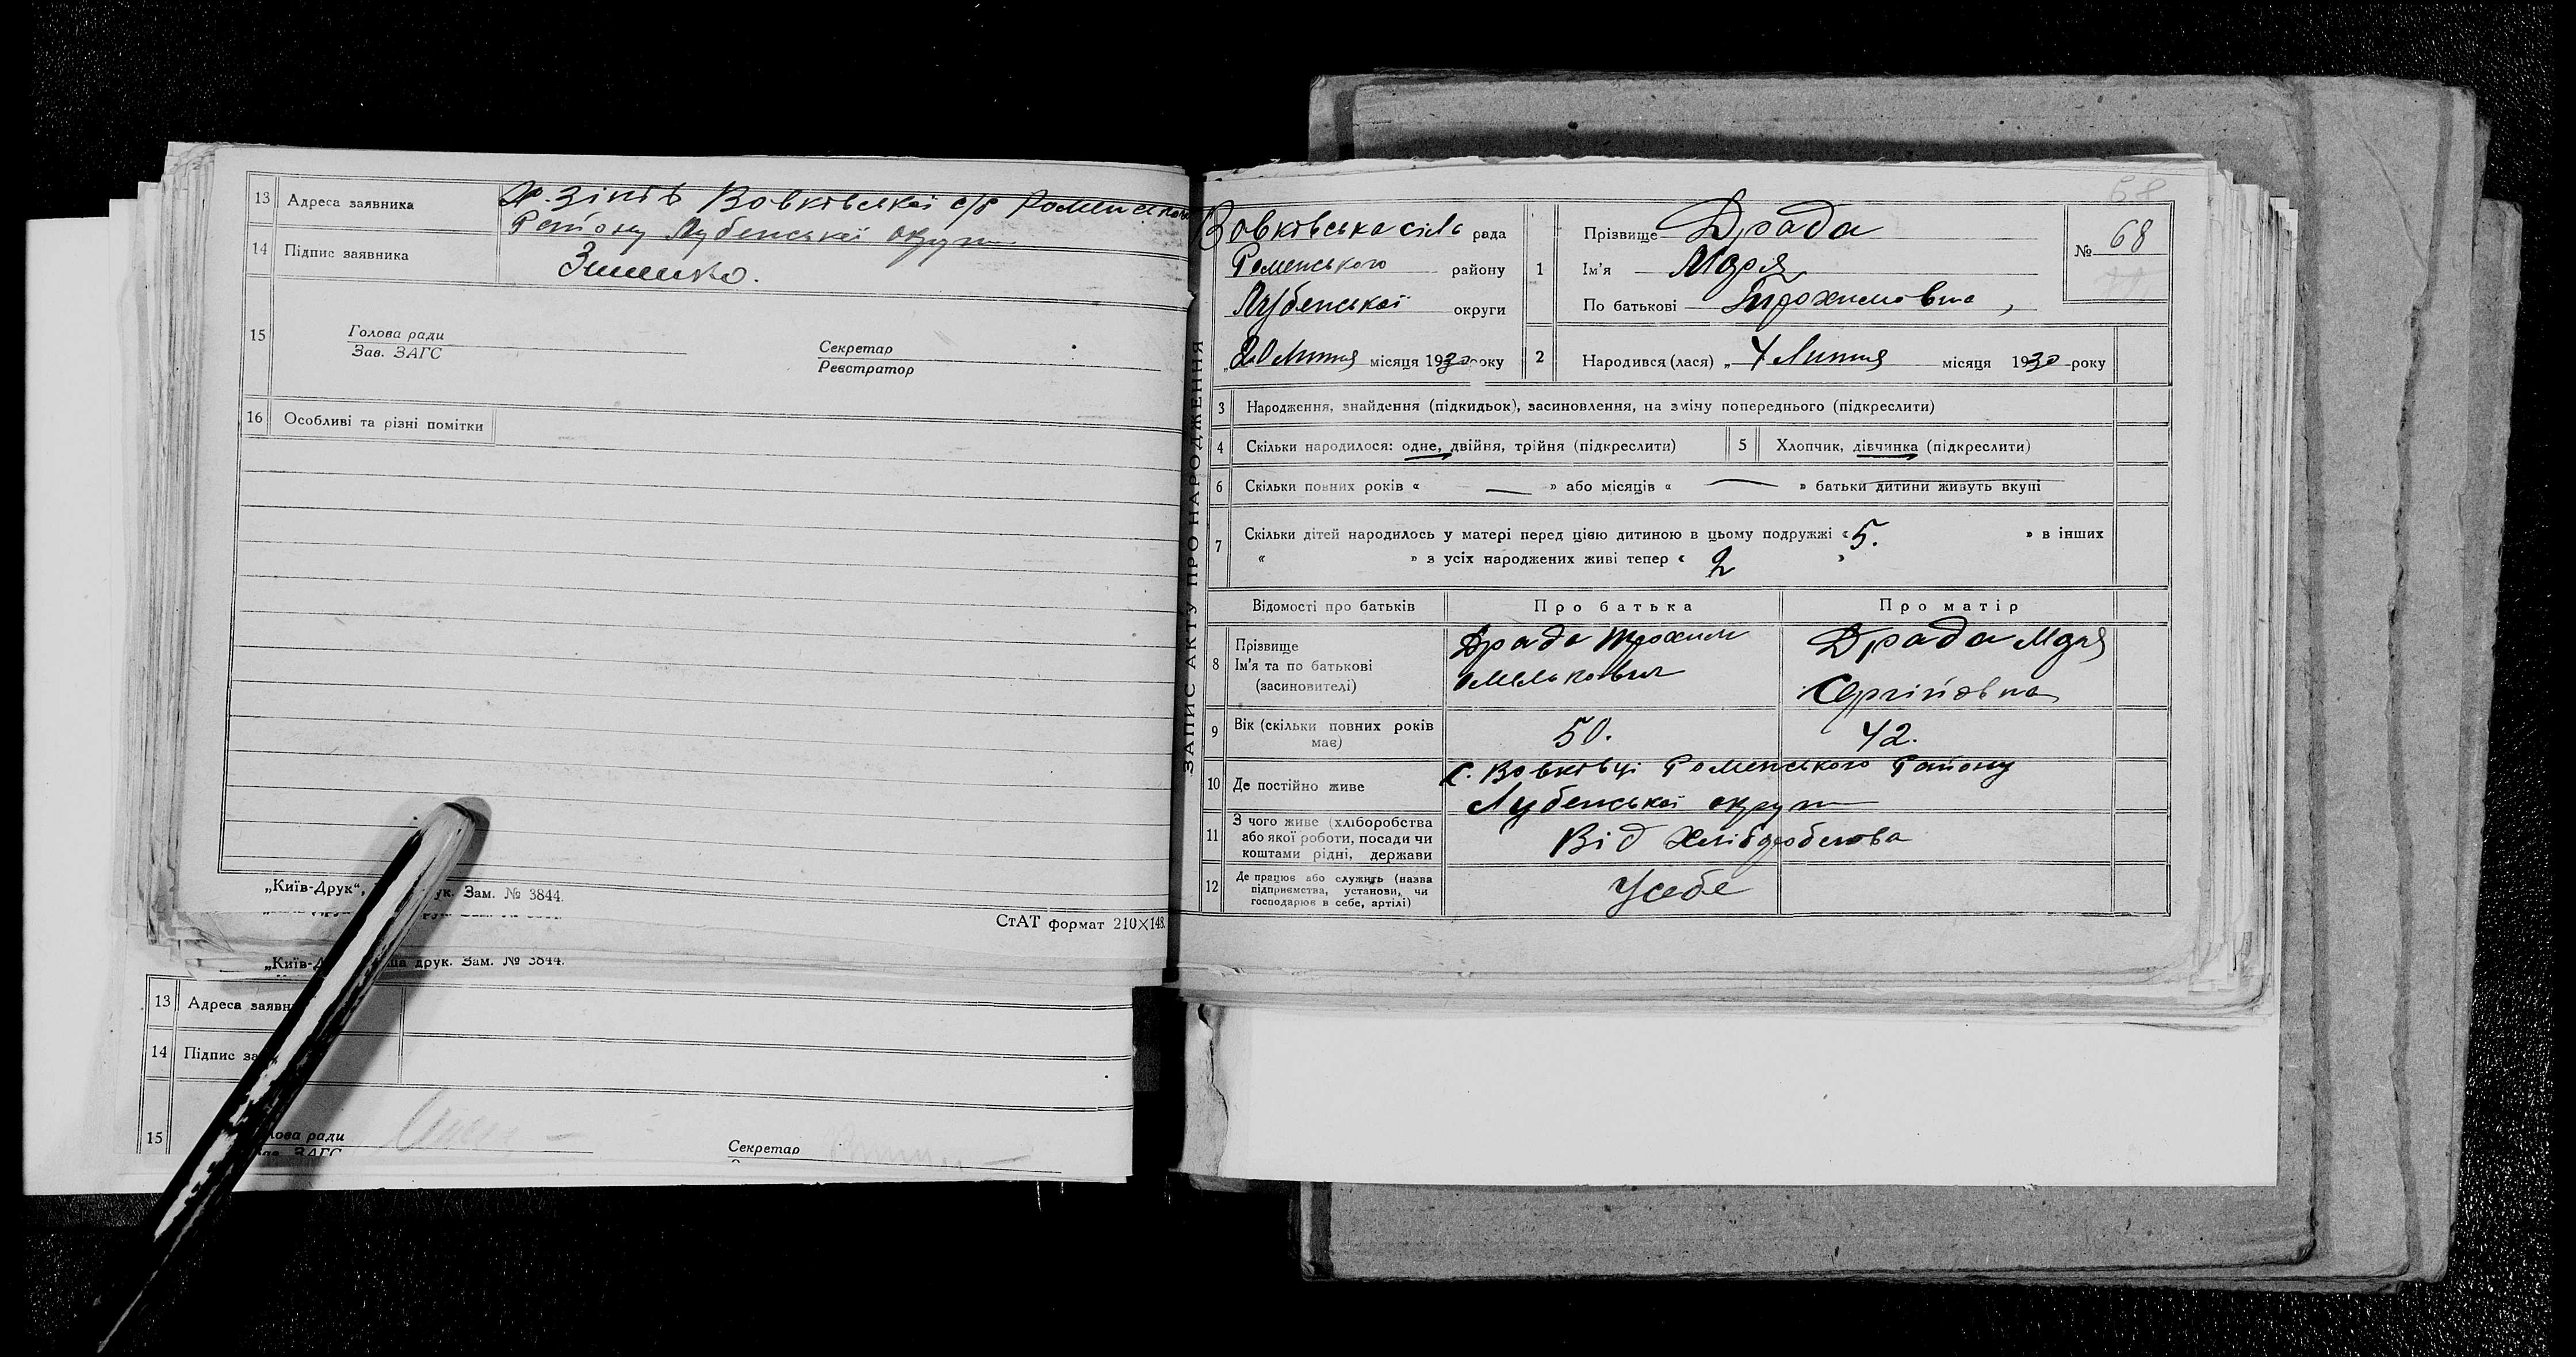 13 Адреса заявника х. Зінів Вовківської с/р Роменського
Району Лубенської округи
14 Підпис заявника
15 Голова ради
Зав. ЗАГС
Секретар
Реєстратор
16 Особливі та різні помітки
„Київ-Друк“, ук. Зам. № 3844.
СтАТ формат 210×148.
„Київ-Д ша друк. Зам. № 3844.
13 Адреса заявн
14 Підпис за
15 лова ради
Зав. ЗАГС
Секретар
ЗАПИС АКТУ ПРО НАРОДЖЕННЯ
68
Вовківська сіль рада
Роменського району
Лубенської округи
„20 Липня місяця 1930 року
1 Прізвище Драда
Ім'я Марія
По батькові Трохимовна
№ 68
2 Народився (лася) „ 4 Липня місяця 1930 року
3 Народження, знайдення (підкидьок), засиновлення, на зміну попереднього (підкреслити)
4 Скільки народилося: одне, двійня, трійня (підкреслити) 5 Хлопчик, дівчинка (підкреслити)
6 Скільки повних років « — » або місяців « — » батьки дитини живуть вкупі
7 Скільки дітей народилось у матері перед цією дитиною в цьому подружжі «5. » в інших
« » з усіх народжених живі тепер « 2 »
Відомості про батьків Про батька Про матір
8 Прізвище Ім'я та по батькові (засиновителі)
Драда Трохим
Омелькович
Драда Марія
Сергіївна
9 Вік (скільки повних років має) 50. 42.
10 Де постійно живе с. Вовківці Роменського Району
Лубенської округи
11 З чого живе (хліборобства
або якої роботи, посади чи
коштами рідні, держави
Від Хліборобства
12 Де працює або служить (назва
підприємства, установи, чи
господарює в себе, артілі)
Усебе